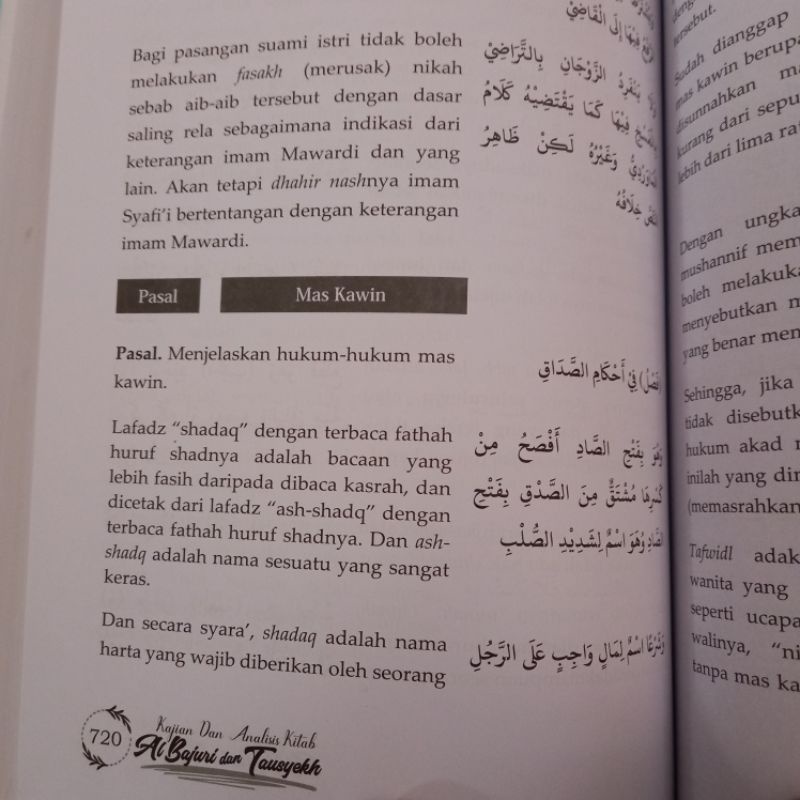 Bagi pasangan suami istri tidak boleh
melakukan fasakh (merusak) nikah
sebab aib-aib tersebut dengan dasar
saling rela sebagaimana indikasi dari
keterangan imam Mawardi dan yang
lain. Akan tetapi dhahir nashnya imam
Syafi'i bertentangan dengan keterangan
imam Mawardi.
فِيْهَا إِلَى الْقَاضِيْ
يَنْفَرِدُ الزَّوْجَانِ بِالتَّرَاضِيْ
فِيْهَا كَمَا يَقْتَضِيْهُ كَلَامُ
وَغَيْرُهُ لَكِنْ ظَاهِرُ
خِلَافُهُ
Pasal
Mas Kawin
Pasal. Menjelaskan hukum-hukum mas
kawin.
(فَصْلٌ) فِيْ أَحْكَامِ الصَّدَاقِ
Lafadz "shadaq" dengan terbaca fathah
huruf shadnya adalah bacaan yang
lebih fasih daripada dibaca kasrah, dan
dicetak dari lafadz "ash-shadq" dengan
terbaca fathah huruf shadnya. Dan ash-
shadq adalah nama sesuatu yang sangat
keras.
وَهُوَ بِفَتْحِ الصَّادِ أَفْصَحُ مِنْ
كَسْرِهَا مُشْتَقٌّ مِنَ الصَّدْقِ بِفَتْحِ
الصَّادِ وَهُوَ اسْمٌ لِشَدِيْدِ الصُّلْبِ
Dan secara syara', shadaq adalah nama
harta yang wajib diberikan oleh seorang
وَشَرْعًا اسْمٌ لِمَالٍ وَاجِبٍ عَلَى الرَّجُلِ
720
Kajian Dan Analisis Kitab
Al Bajuri dan Tausyekh
tersebut.
Sudah dianggap
mas kawin berupa
disunnahkan
kurang dari
lebih dari lima
Dengan
mushannif
boleh
menyebutkan
yang benar
Sehingga, jika
tidak
hukum akad
inilah yang
Tafwidl
wanita yang
seperti
walinya,
tanpa mas